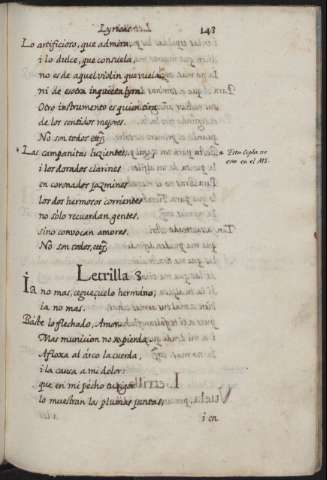 Lyricas.
143
Lo artificioso, que admira,
i lo dulce, que consuela,
no es de aquel violin que vuela,
ni de esotra inquieta lyra.
Otro instrumento es quien tira
de los sentidos mejores.
No son todos etc.
Las campanitas luzientes,
i los dorados clarines
en coronados jazmines
los dos hermosos corrientes
no solo recuerdan gentes,
sino convocan amores.
No son todos, etc.
Esta copla no
era en el MS.
Letrilla 8
Ia no mas, ceguezuelo hermano,
ia no mas.
Baste lo flechado, Amor
Mas municion no se pierda,
Afloxa al arco la cuerda,
i la causa a mi dolor:
que en mi pecho tu rigor
lo muestran las plumas juntas,
i en